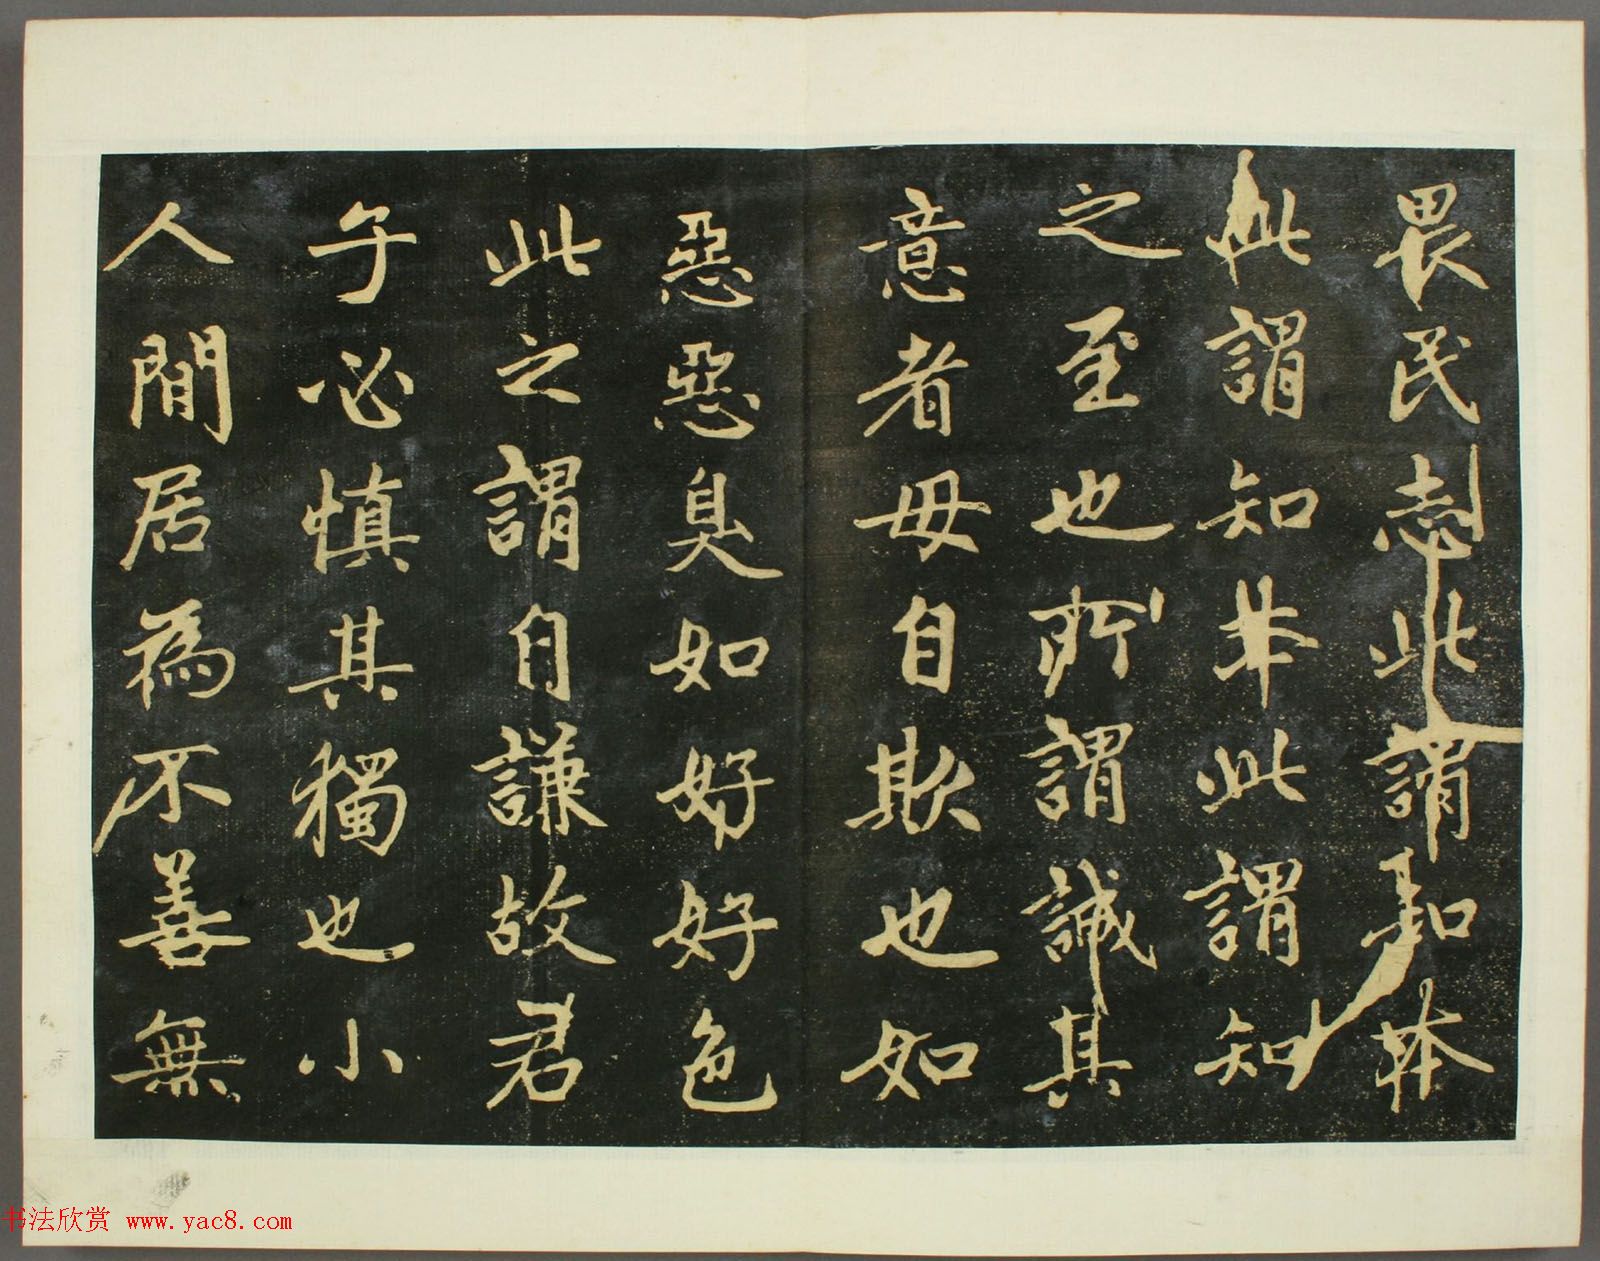 畏民志此謂知本
此謂知本此謂知
之至也所謂誠其
意者毋自欺也如
惡惡臭如好好色
此之謂自謙故君
子必慎其獨也小
人閒居為不善無
书法欣赏 www.yac8.com